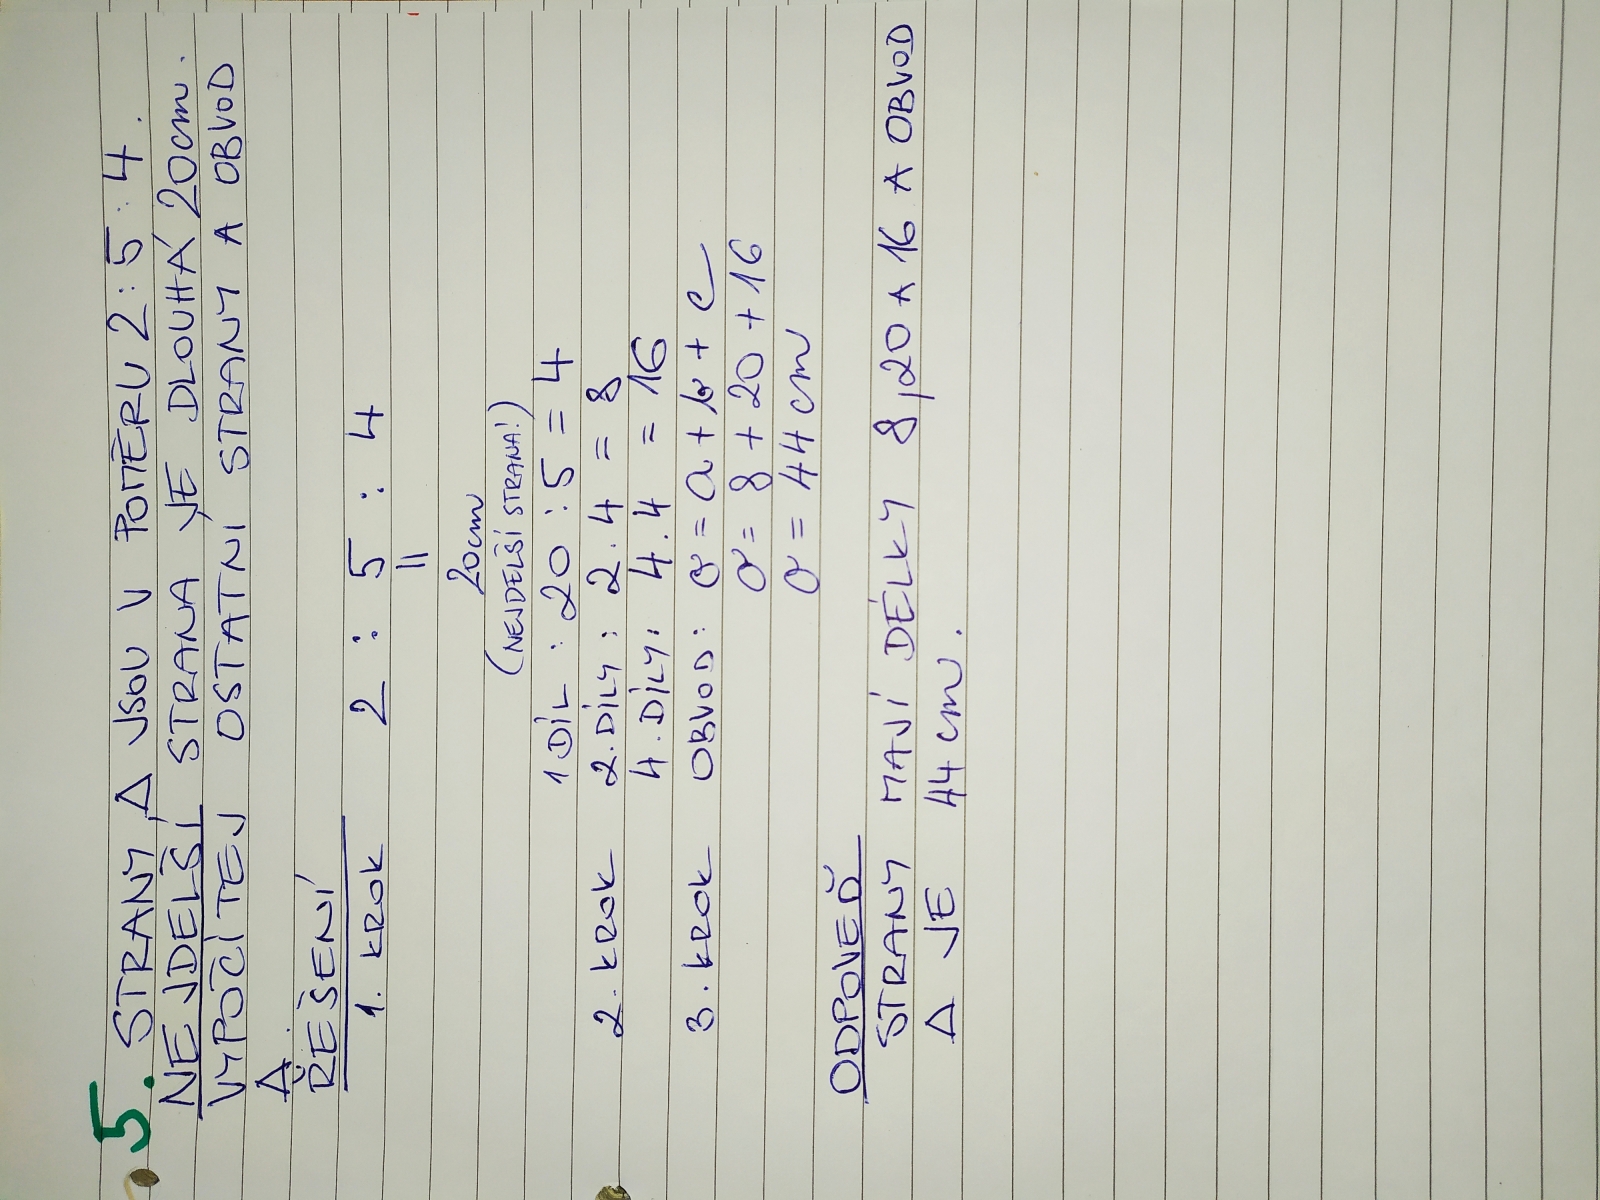 5. STRANY Δ JSOU V POMĚRU 2 : 5 : 4 .
NEJDELŠÍ STRANA JE DLOUHÁ 20cm.
VYPOČÍTEJ OSTATNÍ STRANY A OBVOD
Δ.
ŘEŠENÍ
1. KROK 2 : 5 : 4
=
20cm
(NEJDELŠÍ STRANA!)
1 DÍL : 20 : 5 = 4
2. KROK 2. DÍLY : 2 . 4 = 8
4. DÍLY: 4 . 4 = 16
3. KROK OBVOD: o = a + b + c
o = 8 + 20 + 16
o = 44 cm
ODPOVEĎ
STRANY MAJÍ DÉLKY 8,20 A 16 A OBVOD
Δ JE 44 cm.